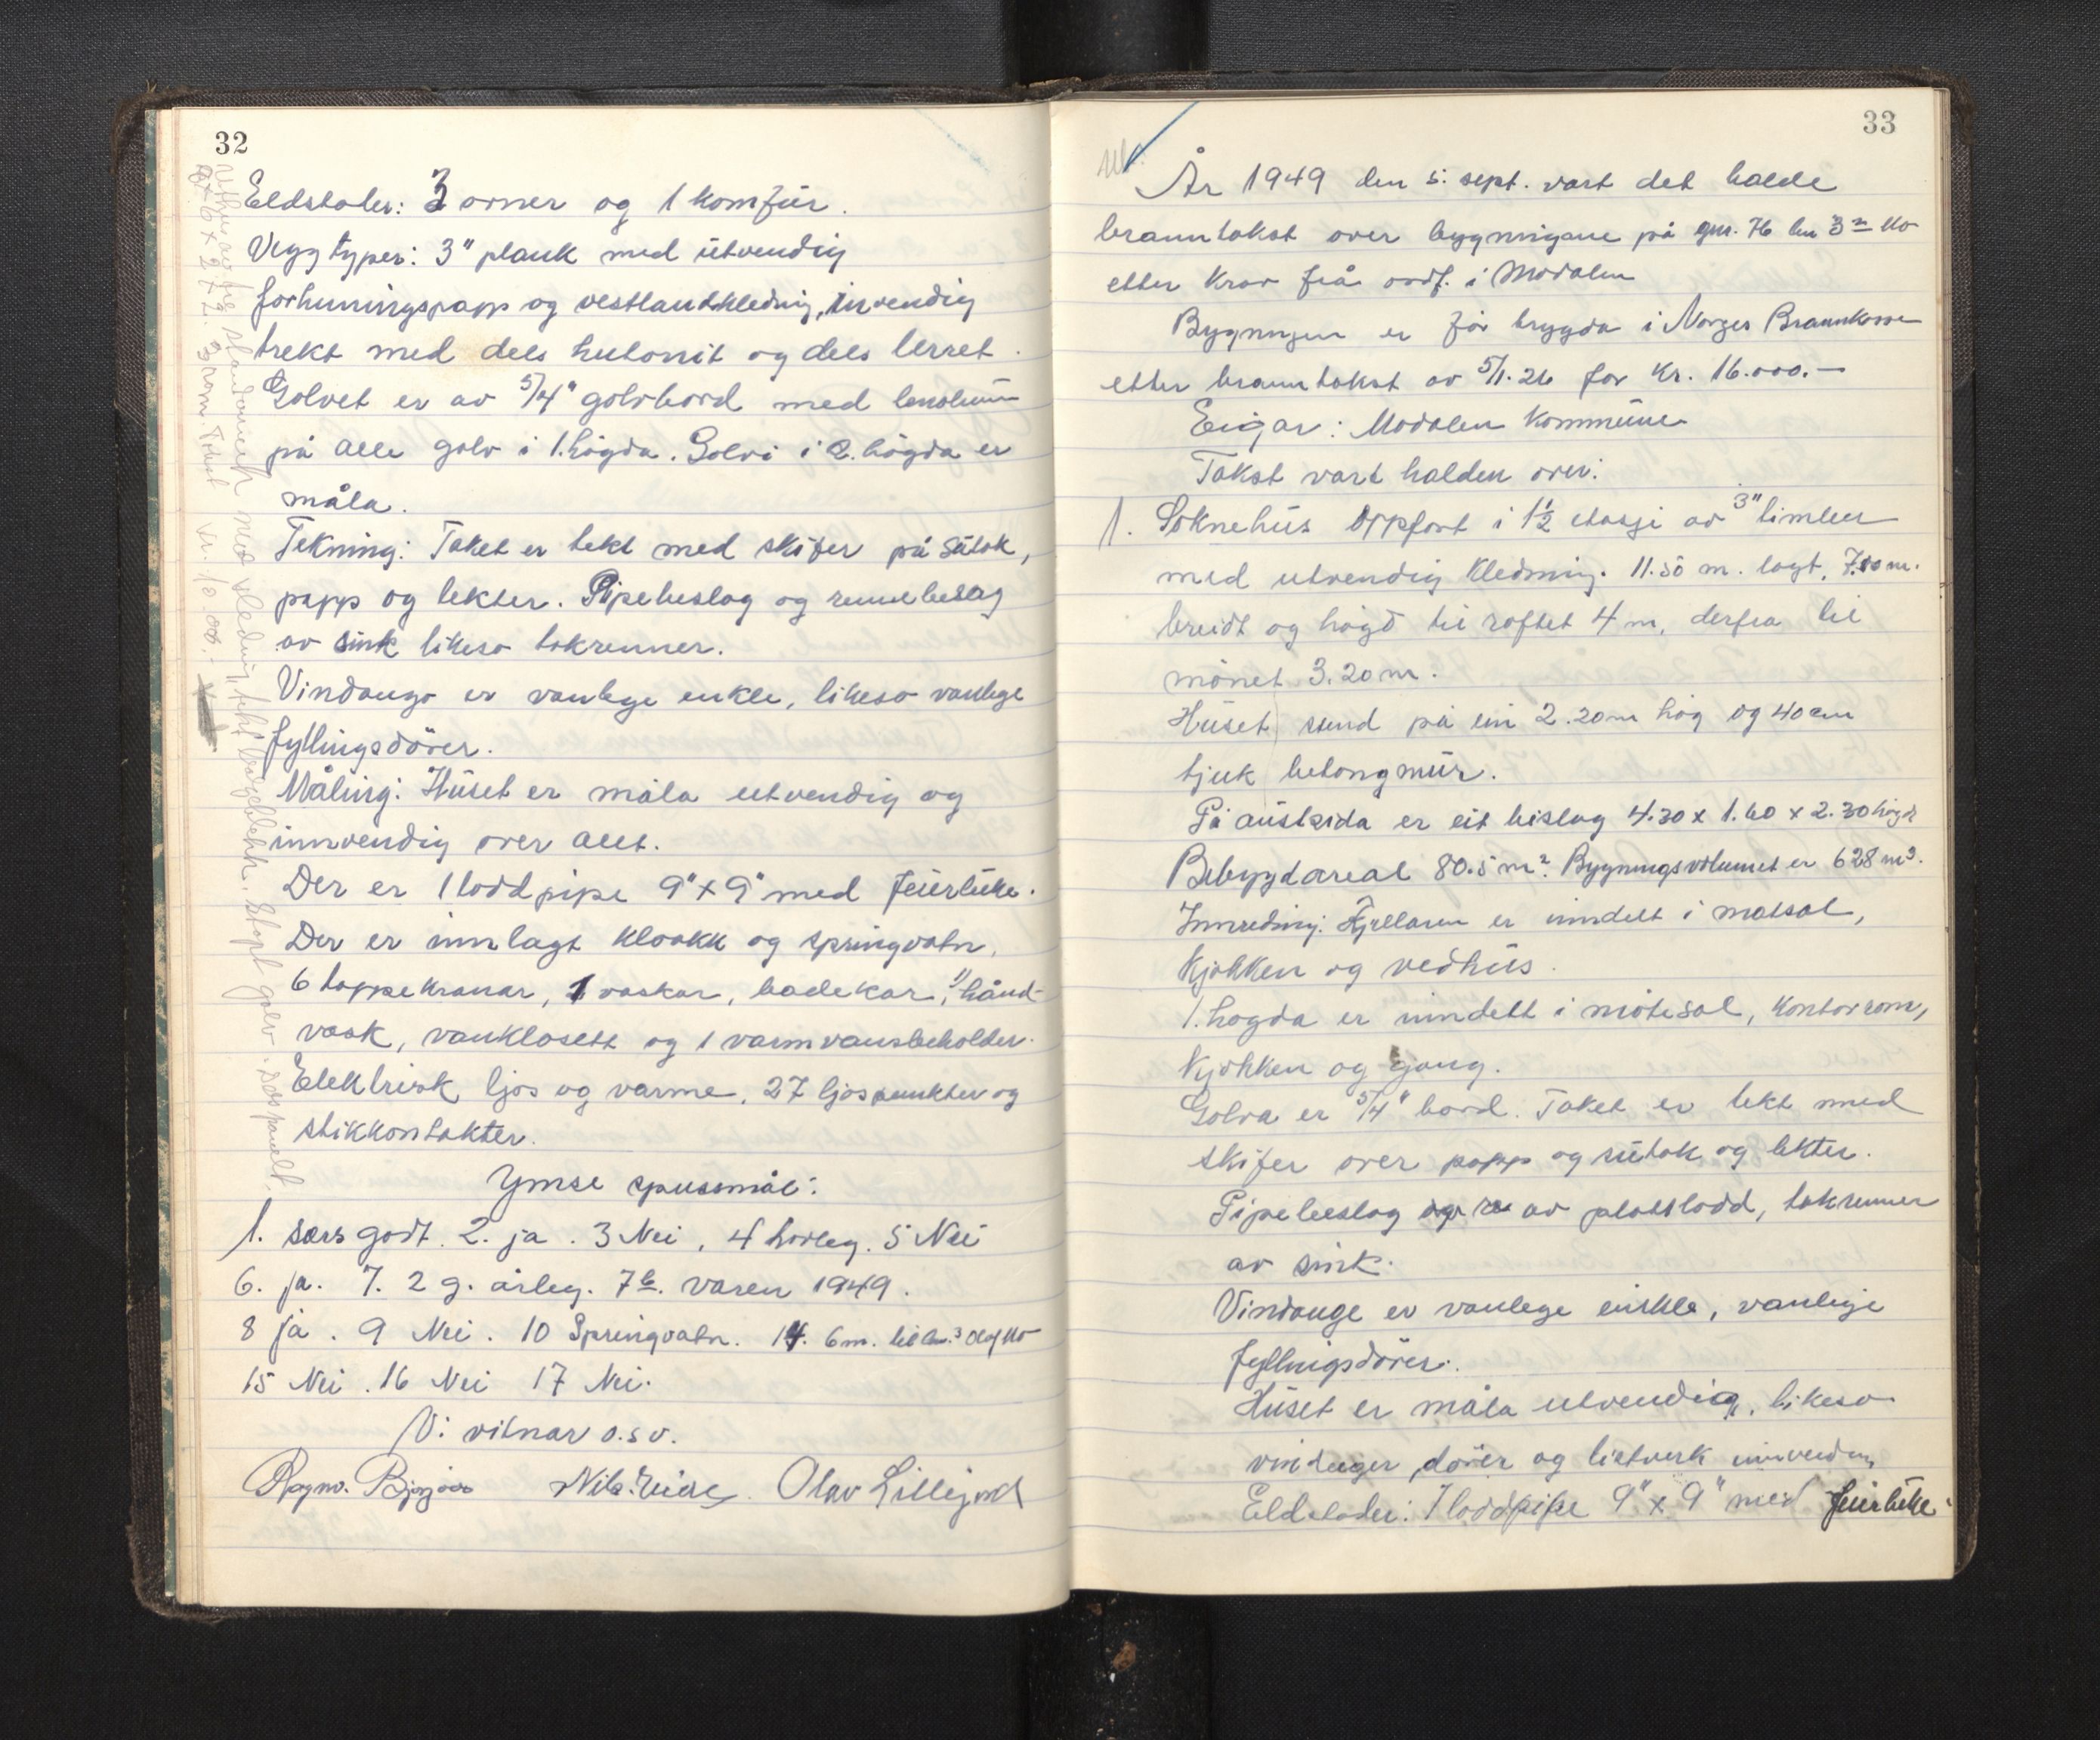 32
Eldstader: 3 omner og 1 komfür.
Vegg typer: 3" plank med ütvendig
forhuningspapp og vestlandskledning, invendig
trekt med dels hutonit og dels lerret.
Golvet er av 5/4" golvbord med linoleum
på alle golv i 1. høgda. Golvi i 2. høgda er
måla.
Tekning: Taket er tekt med skifer på sutak,
papp og lekter. Pipebeslag og rennebeslag
av sink likeso takrenner.
Vindaugo er vanlege enkle, likeso vanlege
fyllingsdörer.
Måling: Hüset er måla utvendig og
innvendig over allt.
Der er 1 loddpipe 9" x 9" med feierlüke.
Der er innlagt kloakk og springvatn.
6 tappekranar, 1 vaskar, badekar, 1 hånd-
vask, vanklosett og 1 varmvansbeholder.
Elektrisk ljos og varme. 27 ljospunkter og
stikkontakter.
Ymse spursmål:
1. særs godt. 2. ja. 3 Nei. 4 høveleg. 5 Nei
6. ja. 7. 2 g. årleg. 7b. våren 1949.
8 ja. 9 Nei. 10 Springvatn. 14. 6 m. til bn. 3
15 Nei. 16 Nei 17 Nei.
Vi vitnar o.s v.
Olav Lillejord
Uthus av
med kledning, tekt
. Støpt golv.
3 rom. Takst kr.
33
År 1949 den 5. sept. vart det halde
branntakst over bygningane på gnr. 76 bn 3 Mo
etter krav frå ordf. i Modalen
Bygningen er før trygda i Norges Brannkasse
etter branntakst av 5/1.26 for kr. 16.000.-
Eigar: Modalen kommüne
Takst vart halden over:
1. Soknehüs oppført i 1½ etasje av 3" timber
med utvendig kledning. 11.50 m. langt, 7.00 m.
breidt og högd til raftet 4 m, derfra til
mönet 3.20 m.
Hüset stend på ein 2.20 m hög og 40 cm
tjuk betongmür.
På aüstsida er eit bislag 4.30 x 1.60 x 2.30 högd
Bebygd areal 80.5 m². Bygningsvolumet er 628 m³.
Innreding: Kjellaren er inndelt i matsal,
kjøkken og vedhüs.
1. høgda er inndelt i mötesal, kontorrom,
kjøkken og gang.
Golva er 5/4" bord. Taket er tekt med
skifer over papp og sütak og lekter.
Pipebeslag og re av platelodd, takrenner
av sink.
Vindauge er vanlege enkle, vanlige
fyllingsdörer.
Hüset er måla utvendig, likeso
vinduger, dörer og listverk innvendig
Eldstader: 1 loddpipe 9" x 9" med feierlüke